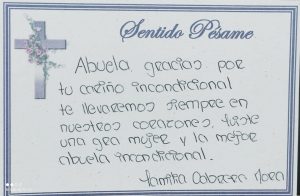 Sentido Pésame
Abuela gracias por
tu cariño incondicional
te llevaremos siempre en
nuestros corazones, fuiste
una gra mujer y la mejor
abuela incondicional.
Familia Cabrera Mora